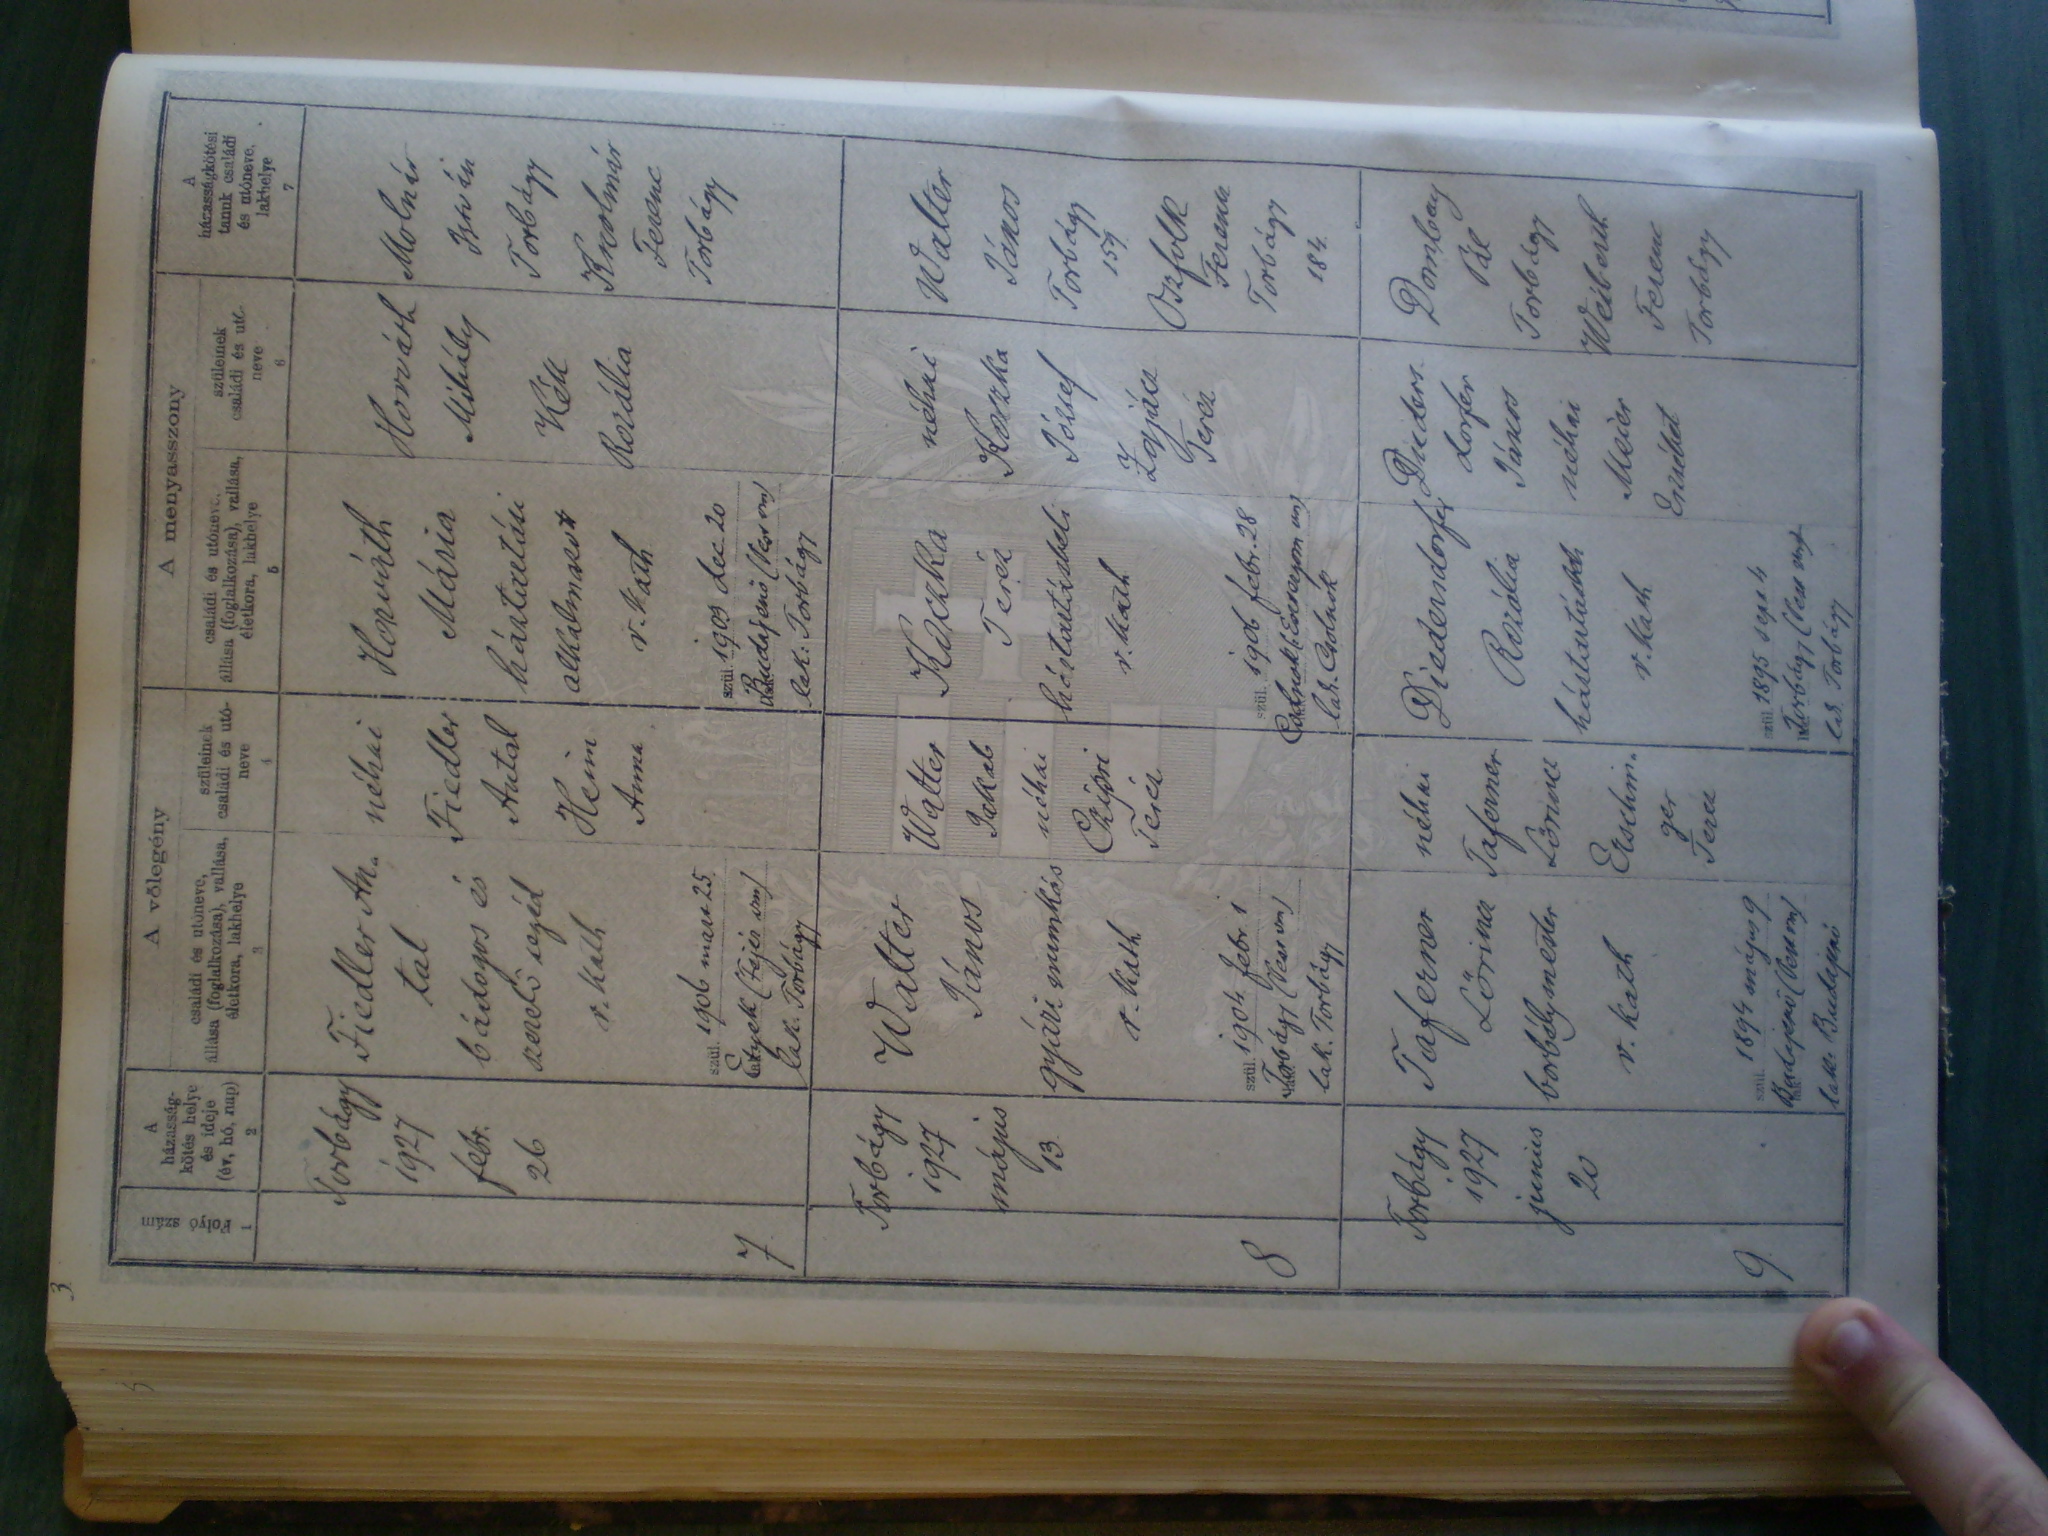 3
A
házasság-
kötés helye
és ideje
(év, hó, nap)
A vőlegény
A menyasszony
A
házasságkötési
tanuk családi
és utóneve,
lakhelye
Folyó szám
családi és utóneve,
állása (foglalkozása), vallása,
életkora, lakhelye
szüleinek
családi és utó-
neve
családi és utóneve,
állása (foglalkozása), vallása,
életkora, lakhelye
szüleinek
családi és utó-
neve
1
2
3
4
5
6
7
7
Torbágy
1927
febr.
26
Fiedler An-
tal
bádogos és
szerelő segéd
r. kath
szül. 1906 marc 25.
Etyek (Fejér vm)
lak. Torbágy
néhai
Fiedler
Antal
Heim
Anna
Horváth
Mária
háztartási
alkalmazott
r. kath
szül. 1909 dec. 20
Budajenő (Pest vm)
lak. Torbágy
Horváth
Mihály
Kék
Rozália
Molnár
István
Torbágy
Ferenc
Torbágy
8
Torbágy
1927
május
13.
Walter
János
gyári munkás
r. kath
szül. 1904 febr. 1
Torbágy (Pest vm)
lak. Torbágy
Walter
Jakab
néhai
Csépri
Teréz
Kaczka
Teréz
háztartásbeli
r. kath
szül. 1906 febr. 28
Csolnok (Esztergom vm)
lak. Csolnok
néhai
József
Teréz
Walter
János
Torbágy
159.
Ferenc
Torbágy
184.
9.
Torbágy
1927
junius
20
Taferner
Lőrincz
borbélymester
r. kath
szül. 1894 május 9
Budajenő (Pest vm)
lak. Budajenő
néhai
Taferner
Lőrincz
Erschin-
ger
Teréz
Diedersdorfer
Rozália
háztartásbeli
r. kath
szül. 1895 sept 4
Torbágy (Pest vm)
lak. Torbágy
Dieders-
dorfer
János
néhai
Meier
Erzsébet
Dombay
Pál
Torbágy
Ferenc
Torbágy